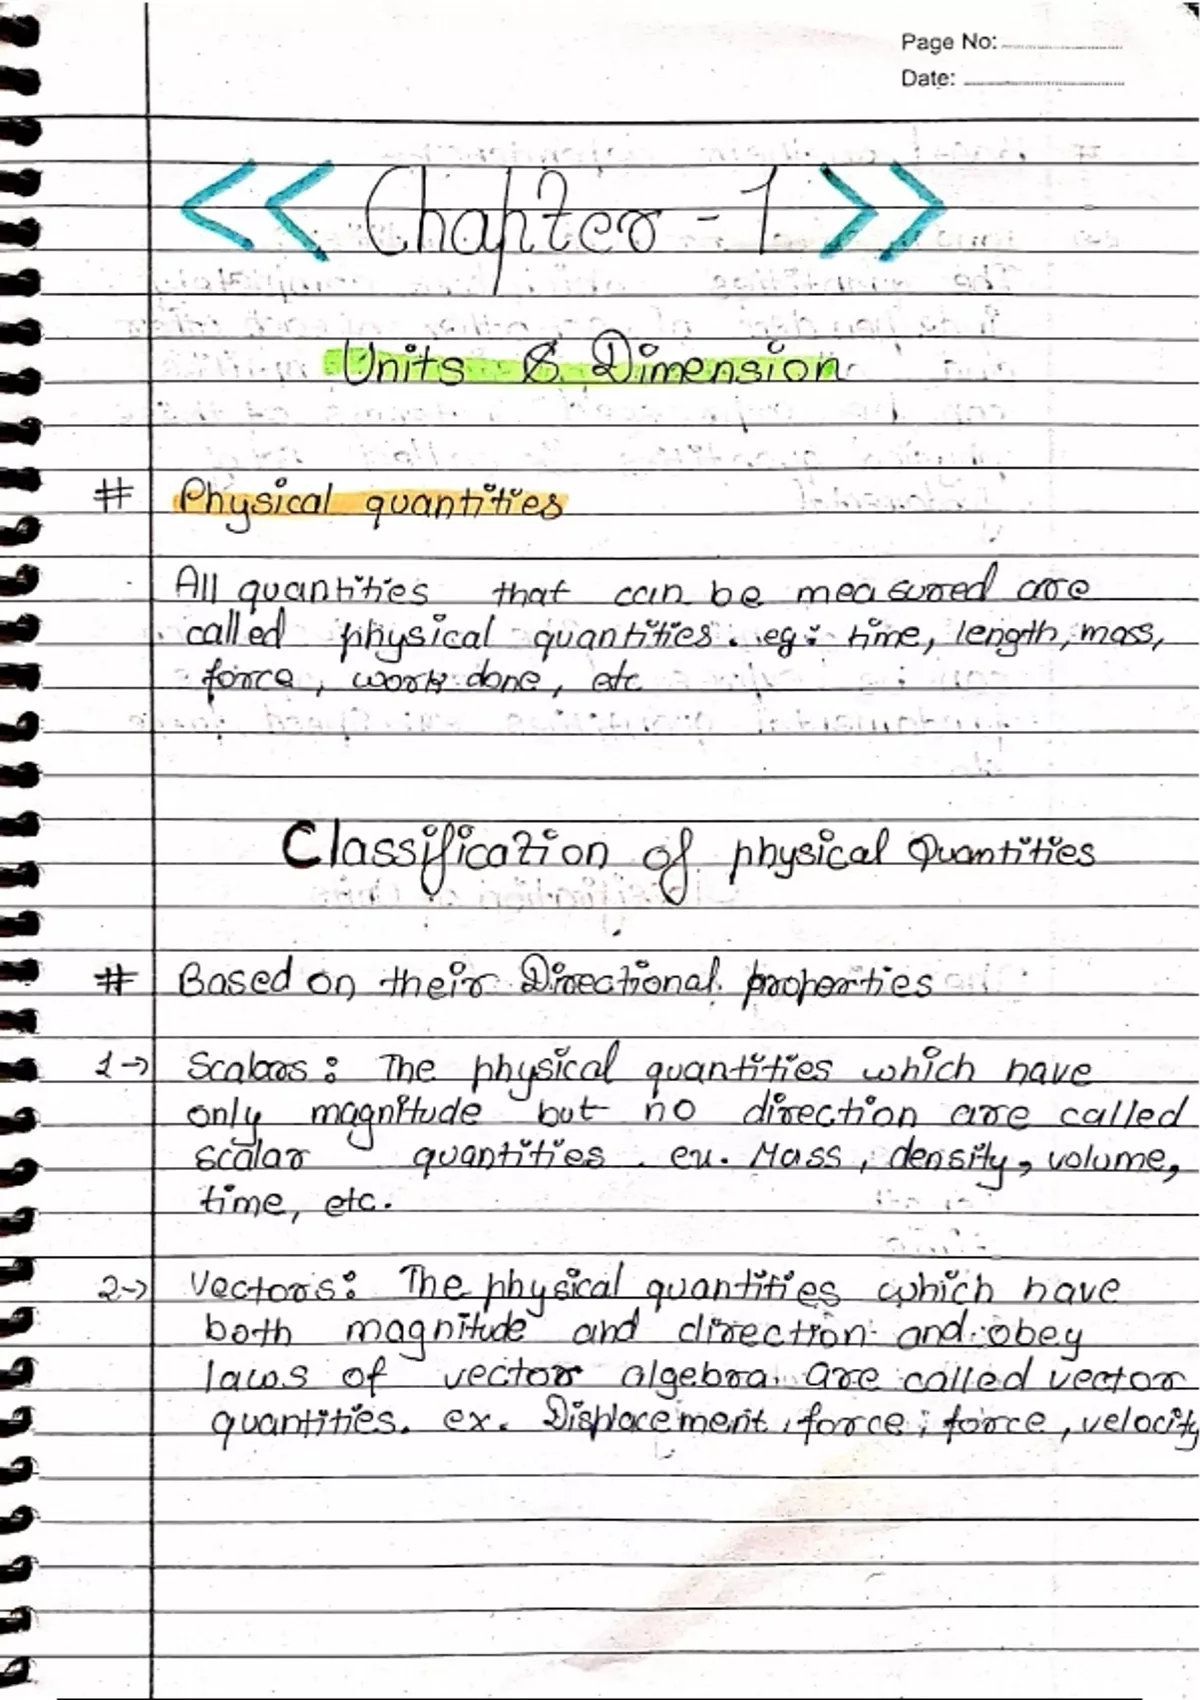 Page No:
Date:
<< Chapter - 1 >>
Units & Dimension
# Physical quantities
All quantities that can be measured are
called physical quantities. eg: time, length, mass,
force, work done, etc
Classification of physical Quantities
# Based on their Directional properties
1→ Scalars: The physical quantities which have
only magnitude but no direction are called
scalar quantities. ex. Mass, density, volume,
time, etc.
2→ Vectors: The physical quantities which have
both magnitude and direction and obey
laws of vector algebra are called vector
quantities. ex. Displacement, force, force, velocity